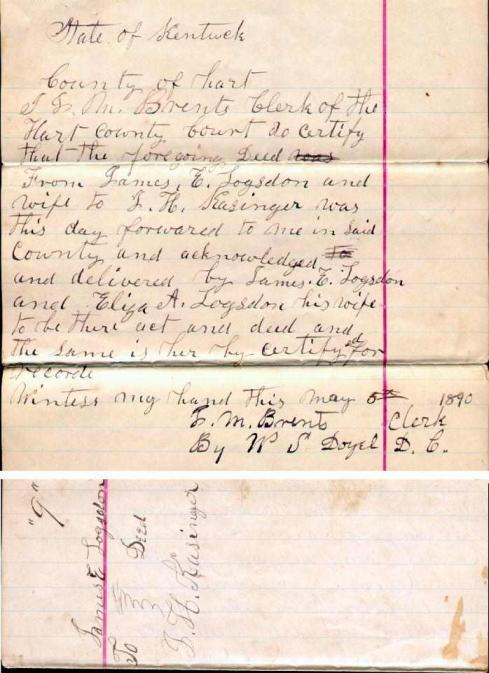 State of Kentuck
County of hart
I F. M. Brents Clerk of the
Hart County Court do certify
that the foregoing Deed was
From James, E. Logsdon and
wife to F. H. Kasinger was
this day forwared to me in said
County and acknowledged To
and delivered by James. E. Logsdon
and Eliza A. Logsdon his wife
to be there act and deed and
the same is her by certifyed for
recorde
Wintess my hand this may 5th 1890
F. M. Brents Clerk
By W S Doyel D. C.
"9"
James E Logsdon
To Deed
F. H. Kasinger